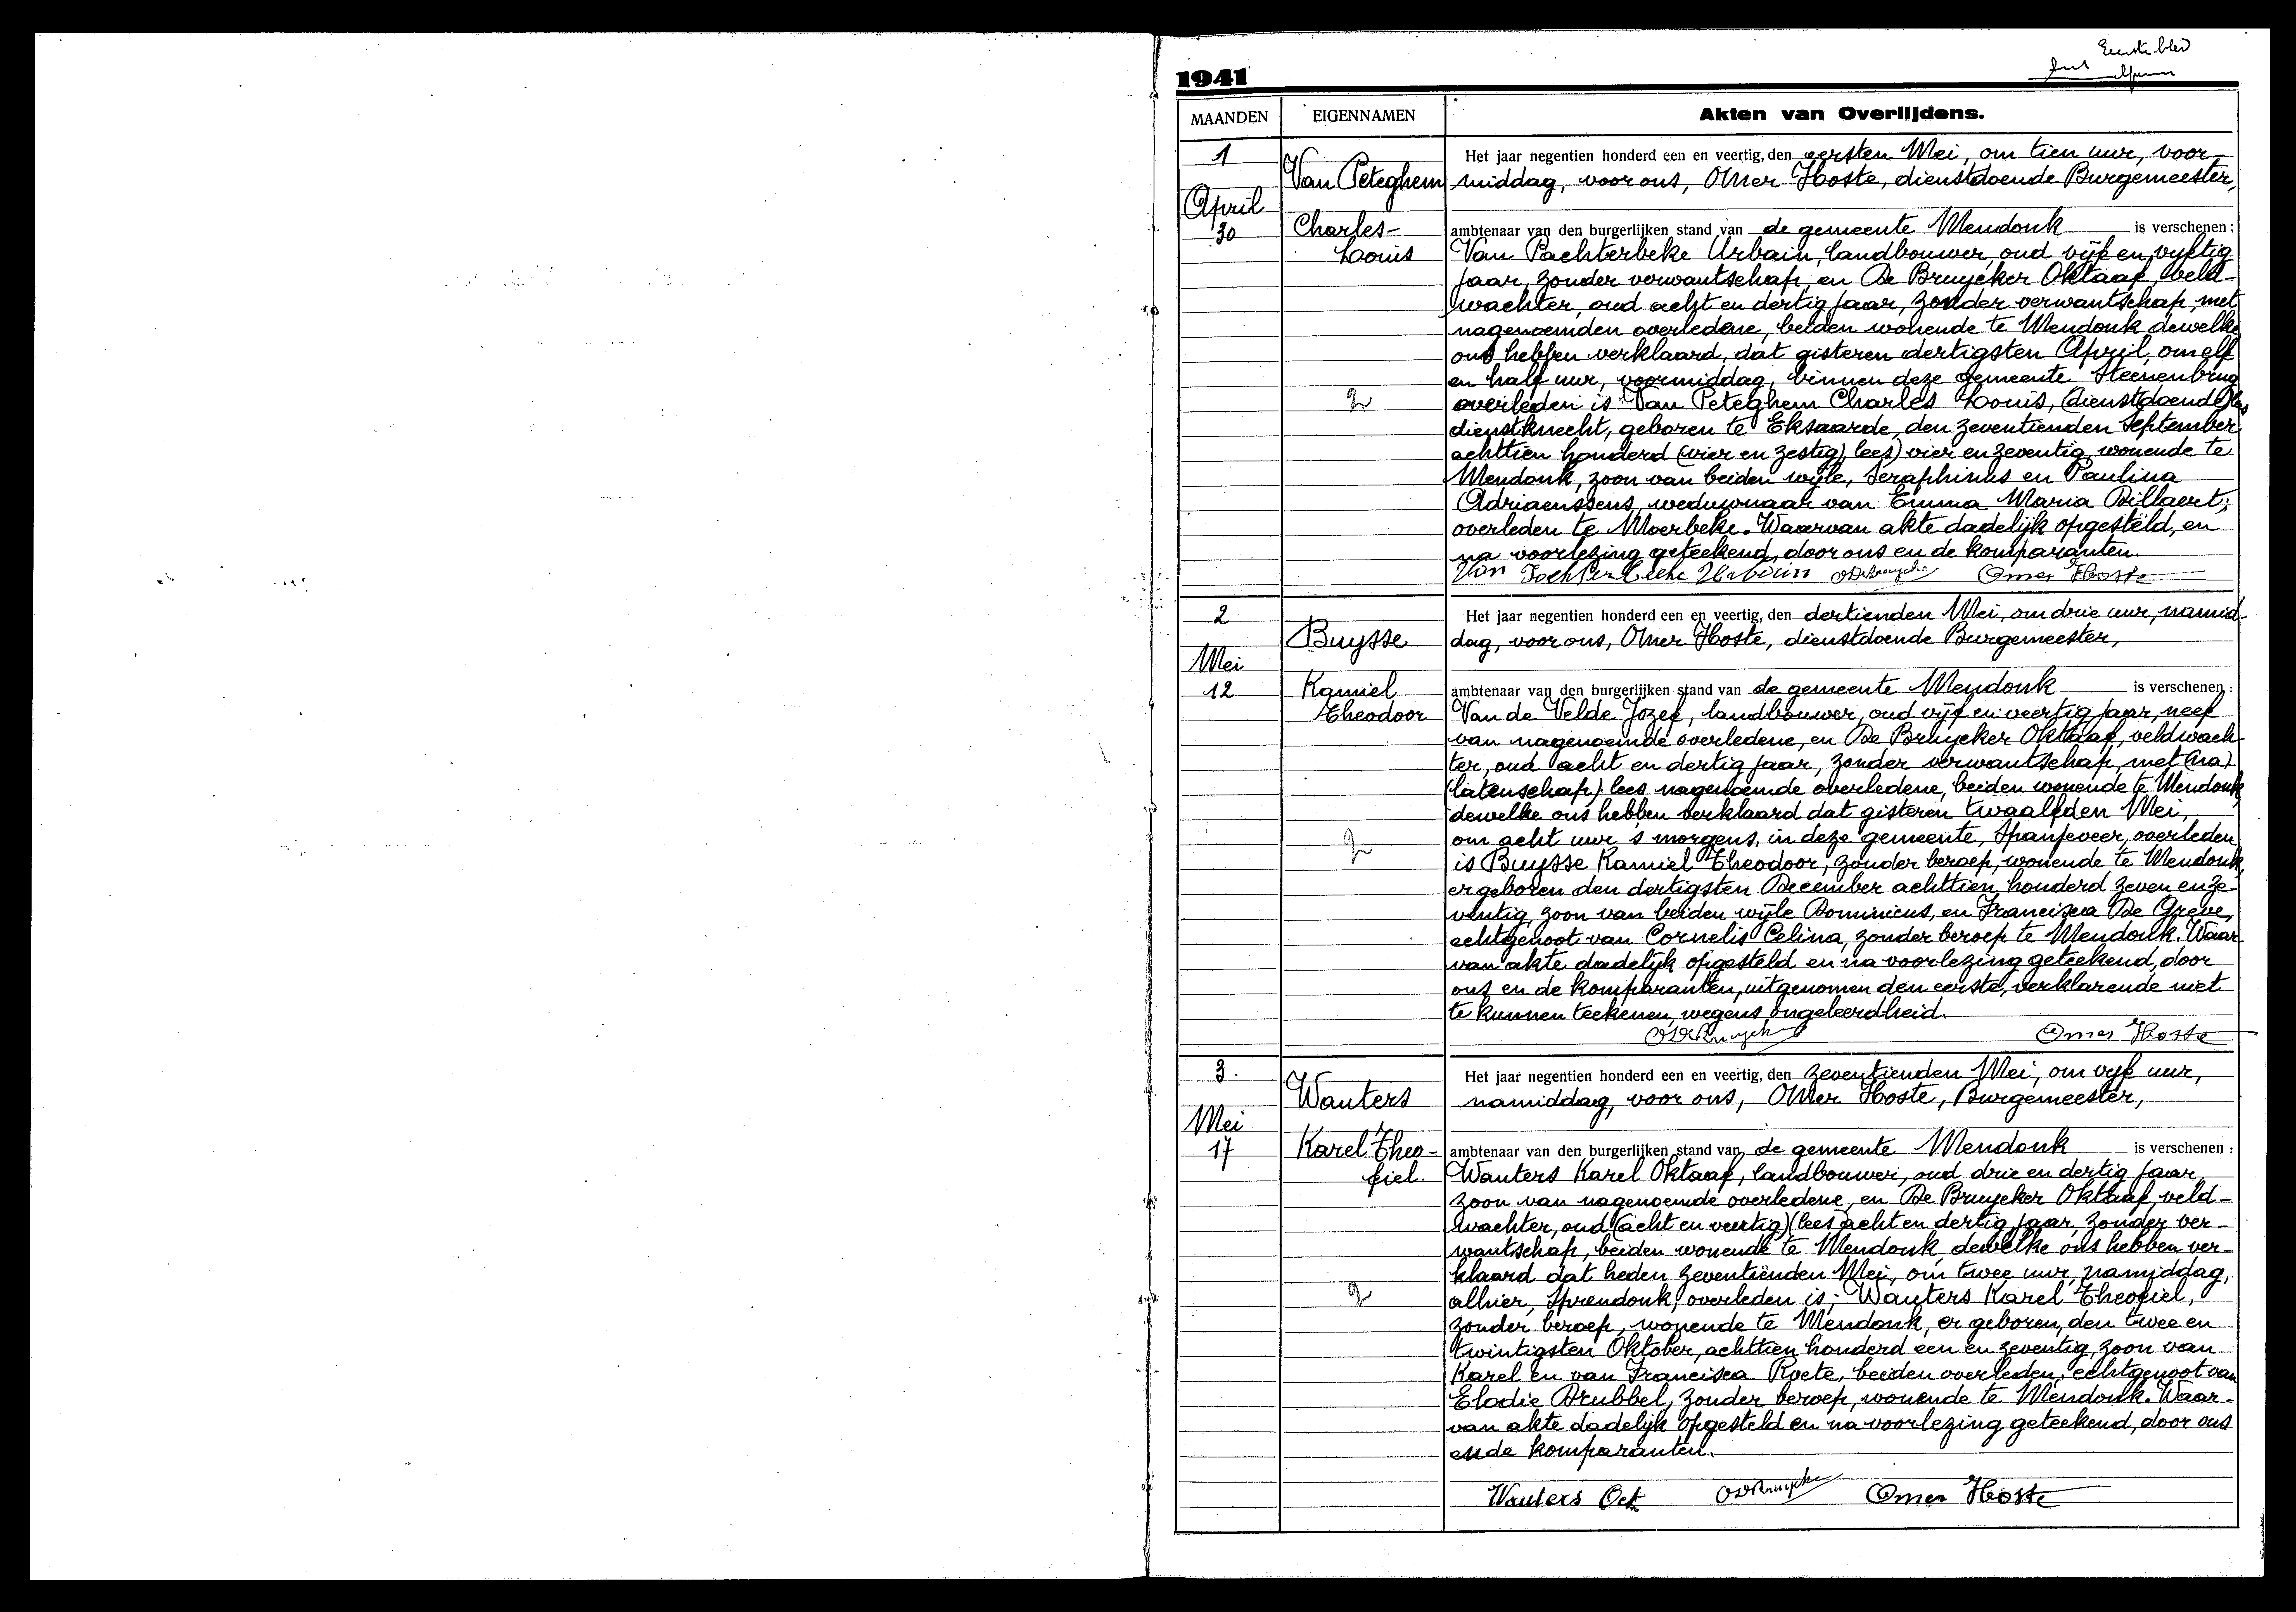 Eerste blad
1941
MAANDEN
EIGENNAMEN
Akten van Overlijdens.
1
April
30
Van Peteghem
Charles-
Louis
2
Het jaar negentien honderd een en veertig, den eersten Mei, om tien uur, voor-
middag, voor ons, Omer Hoste, dienstdoende Burgemeester,
ambtenaar van den burgerlijken stand van de gemeente Mendonk is verschenen:
Van Pachterbeke Urbain, landbouwer, oud vijf en vijftig
jaar, zonder verwantschap, en De Bruycker Oktaaf, veld-
wachter, oud acht en dertig jaar, zonder verwantschap, met
nagenoemden overledene, beiden wonende te Mendonk dewelke
ons hebben verklaard, dat gisteren dertigsten April, om elf
en half uur, voormiddag, binnen deze gemeente Steenenbrug
overleden is Van Peteghem Charles Louis, (dienstdoende) lees
dienstknecht, geboren te Eksaarde, den zeventienden September
achttien honderd (vier en zestig) lees) vier en zeventig, wonende te
Mendonk, zoon van beiden wijle, Seraphinus en Paulina
Adriaenssens, weduwnaar van Emma Maria Billaert,
overleden te Moerbeke. Waarvan akte dadelijk opgesteld, en
na voorlezing geteekend, door ons en de komparanten.
Van Pachterbeke Urbain ODBruycke Omer Hoste
2
Mei
12
Buysse
Kamiel
Theodoor
2
Het jaar negentien honderd een en veertig, den dertienden Mei, om drie uur, namid-
dag, voor ons, Omer Hoste, dienstdoende Burgemeester,
ambtenaar van den burgerlijken stand van de gemeente Mendonk is verschenen:
Van de Velde Jozef, landbouwer, oud vijf en veertig jaar, neef
van nagenoemde overledene, en De Bruycker Oktaaf, veldwach-
ter, oud acht en dertig jaar, zonder verwantschap, met (na)
(latenschap) lees nagenoemde overledene, beiden wonende te Mendonk,
dewelke ons hebben verklaard dat gisteren twaalfden Mei,
om acht uur 's morgens, in deze gemeente, Spanjeveer, overleden
is Buysse Kamiel Theodoor, zonder beroep, wonende te Mendonk,
er geboren den dertigsten December achttien honderd zeven en ze-
ventig, zoon van beiden wijle Dominicus, en Francisca De Greve,
echtgenoot van Cornelis Celina, zonder beroep te Mendonk. Waar-
van akte dadelijk opgesteld en na voorlezing geteekend, door
ons en de komparanten, uitgenomen den eerste, verklarende niet
te kunnen teekenen, wegens ongeleerdheid.
ODBruycke Omer Hoste
3.
Mei
17
Wauters
Karel Theo-
fiel.
2
Het jaar negentien honderd een en veertig, den zeventienden Mei, om vijf uur,
namiddag, voor ons, Omer Hoste, Burgemeester,
ambtenaar van den burgerlijken stand van de gemeente Mendonk is verschenen:
Wauters Karel Oktaaf, landbouwer, oud drie en dertig jaar,
zoon van nagenoemde overledene, en De Bruycker Oktaaf, veld-
wachter, oud (acht en veertig) (lees acht en dertig jaar, zonder ver-
wantschap, beiden wonende te Mendonk, dewelke ons hebben ver-
klaard dat heden zeventienden Mei, om twee uur, namiddag,
alhier, Sprendonk, overleden is; Wauters Karel Theofiel,
zonder beroep, wonende te Mendonk, er geboren, den twee en
twintigsten Oktober, achttien honderd een en zeventig, zoon van
Karel en van Francisca Roete, beiden overleden, echtgenoot van
Elodie Drubbel, zonder beroep, wonende te Mendonk. Waar-
van akte dadelijk opgesteld en na voorlezing geteekend, door ons
en de komparanten.
Wauters Oct ODBruycke Omer Hoste